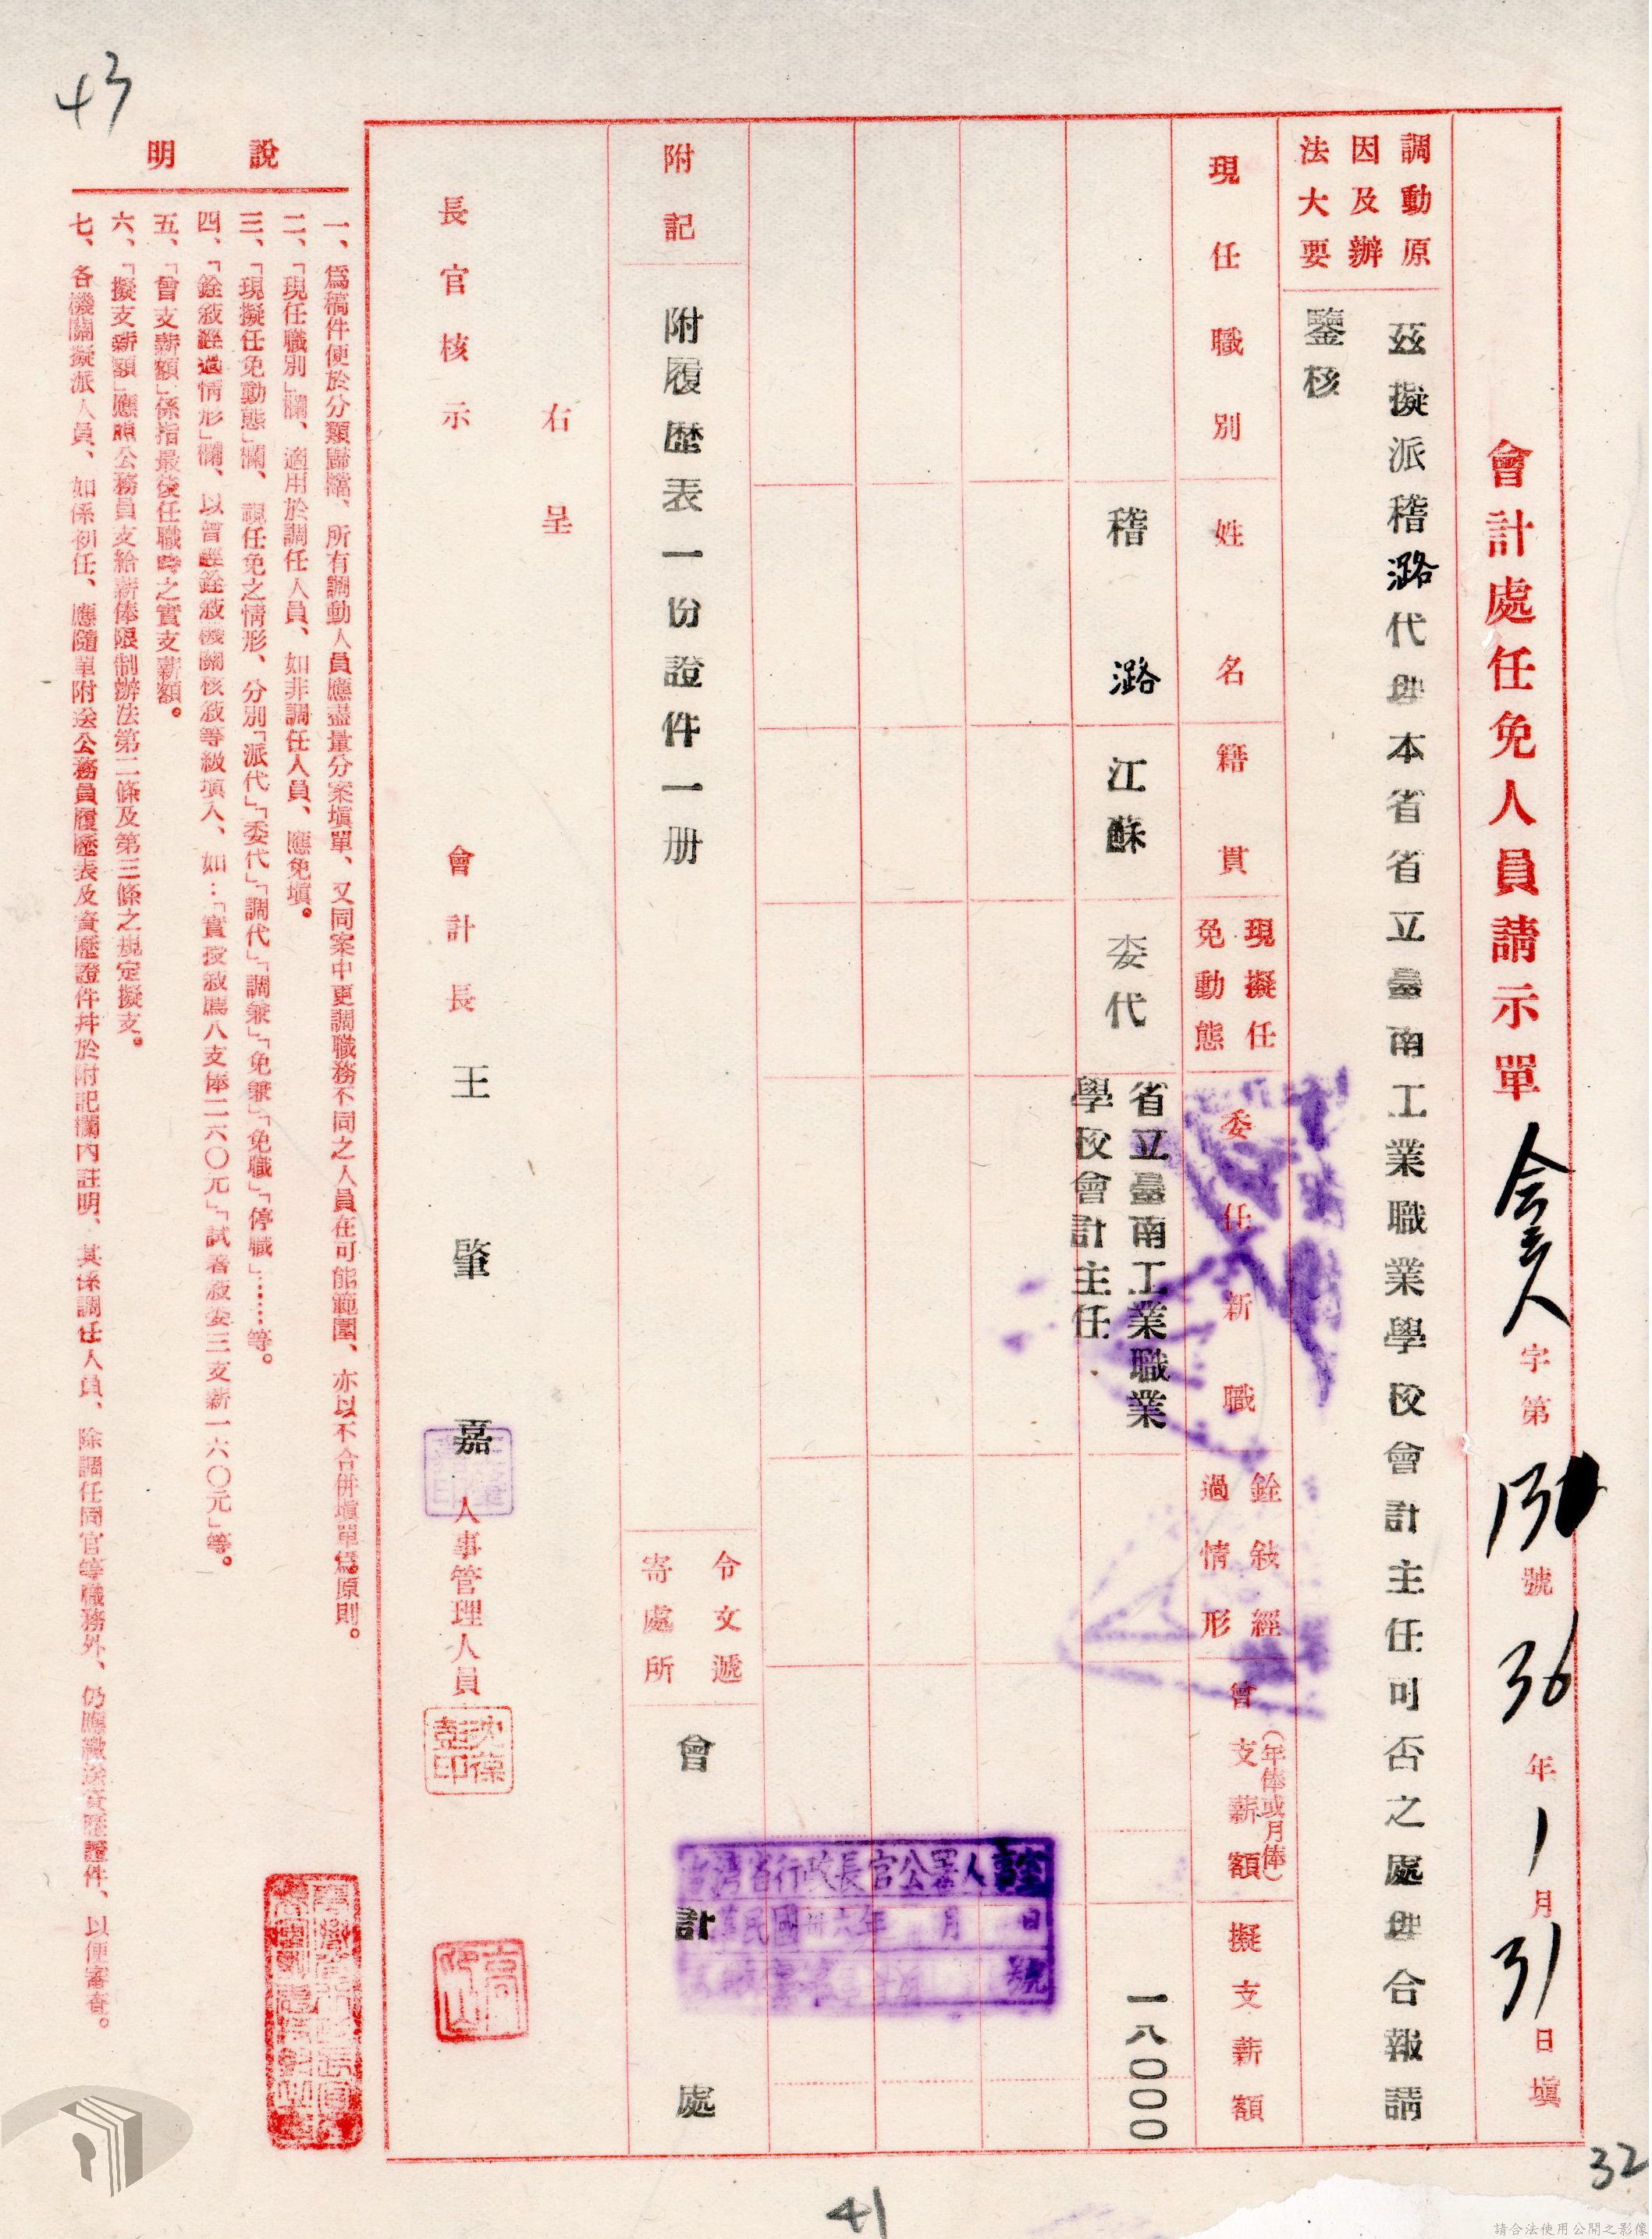 43
會計處任免人員請示單 會人字第13號36年1月31日填
調動原因及辦法大要
茲擬派稽潞代理本省省立臺南工業職業學校會計主任可否之處理合報請
鑒核
現任職別
姓名
籍貫
現擬任免動態
委任新職
銓敍經過情形
曾支薪額(年俸或月俸)
擬支薪額
稽潞
江蘇
委代
省立臺南工業職業
學校會計主任
一八〇〇〇
附記
附履歷表一份證件一册
令文遞寄處所
會計處
台灣省行政長官公署人事室
民國卅六年 月 日
號
右呈
長官核示
會計長 王肇嘉
人事管理人員
說明
一、爲稿件便於分類歸檔、所有調動人員應盡量分案塡單、又同案中更調職務不同之人員在可能範圍、亦以不合併塡單爲原則。
二、「現任職別」欄、適用於調任人員、如非調任人員、應免塡。
三、「現擬任免動態」欄、視任免之情形、分別「派代」「委代」「調代」「調兼」「免兼」「免職」「停職」……等。
四、「銓敍經過情形」欄、以曾經銓敍機關核敍等級塡入、如：「實授敍薦八支俸二六〇元」「試署敍委三支薪一六〇元」等。
五、「曾支薪額」係指最後任職時之實支薪額。
六、「擬支薪額」應照公務員支給薪俸限制辦法第二條及第三條之規定擬支。
七、各機關擬派人員、如係初任、應隨單附送公務員履歷表及資歷證件并於附記欄內註明、其係調任人員、除調任同官等職務外、仍應繳送資歷證件、以便審查。
41
32
請合法使用公開之影像